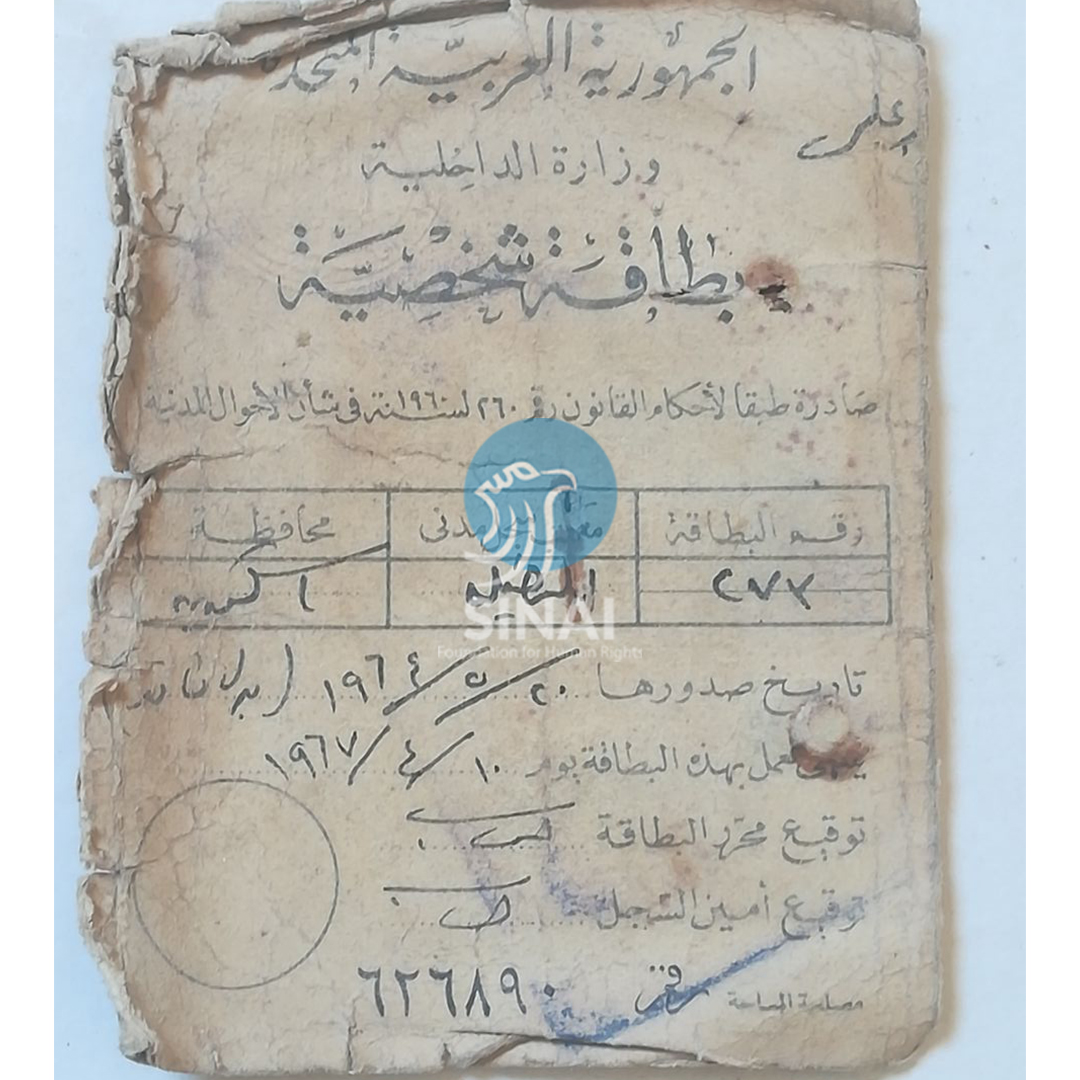 الجمهورية العربية المتحدة
وزارة الداخلية
بطاقة شخصية
صادرة طبقا لأحكام القانون رقم ٢٦٠ لسنة ١٩٦٠ في شأن الأحوال المدنية
رقم البطاقة مدنى محافظة
٢٧٣
SINAI
Foundation for Human Rights
تاريخ صدورها ٢٠/٥/١٩٦٤
يبدأ العمل بهذه البطاقة يوم ١٠/٤/١٩٦٧
توقيع محرر البطاقة
توقيع أمين السجل
مصلحة المساحة رقم ٦٢٦٨٩٠